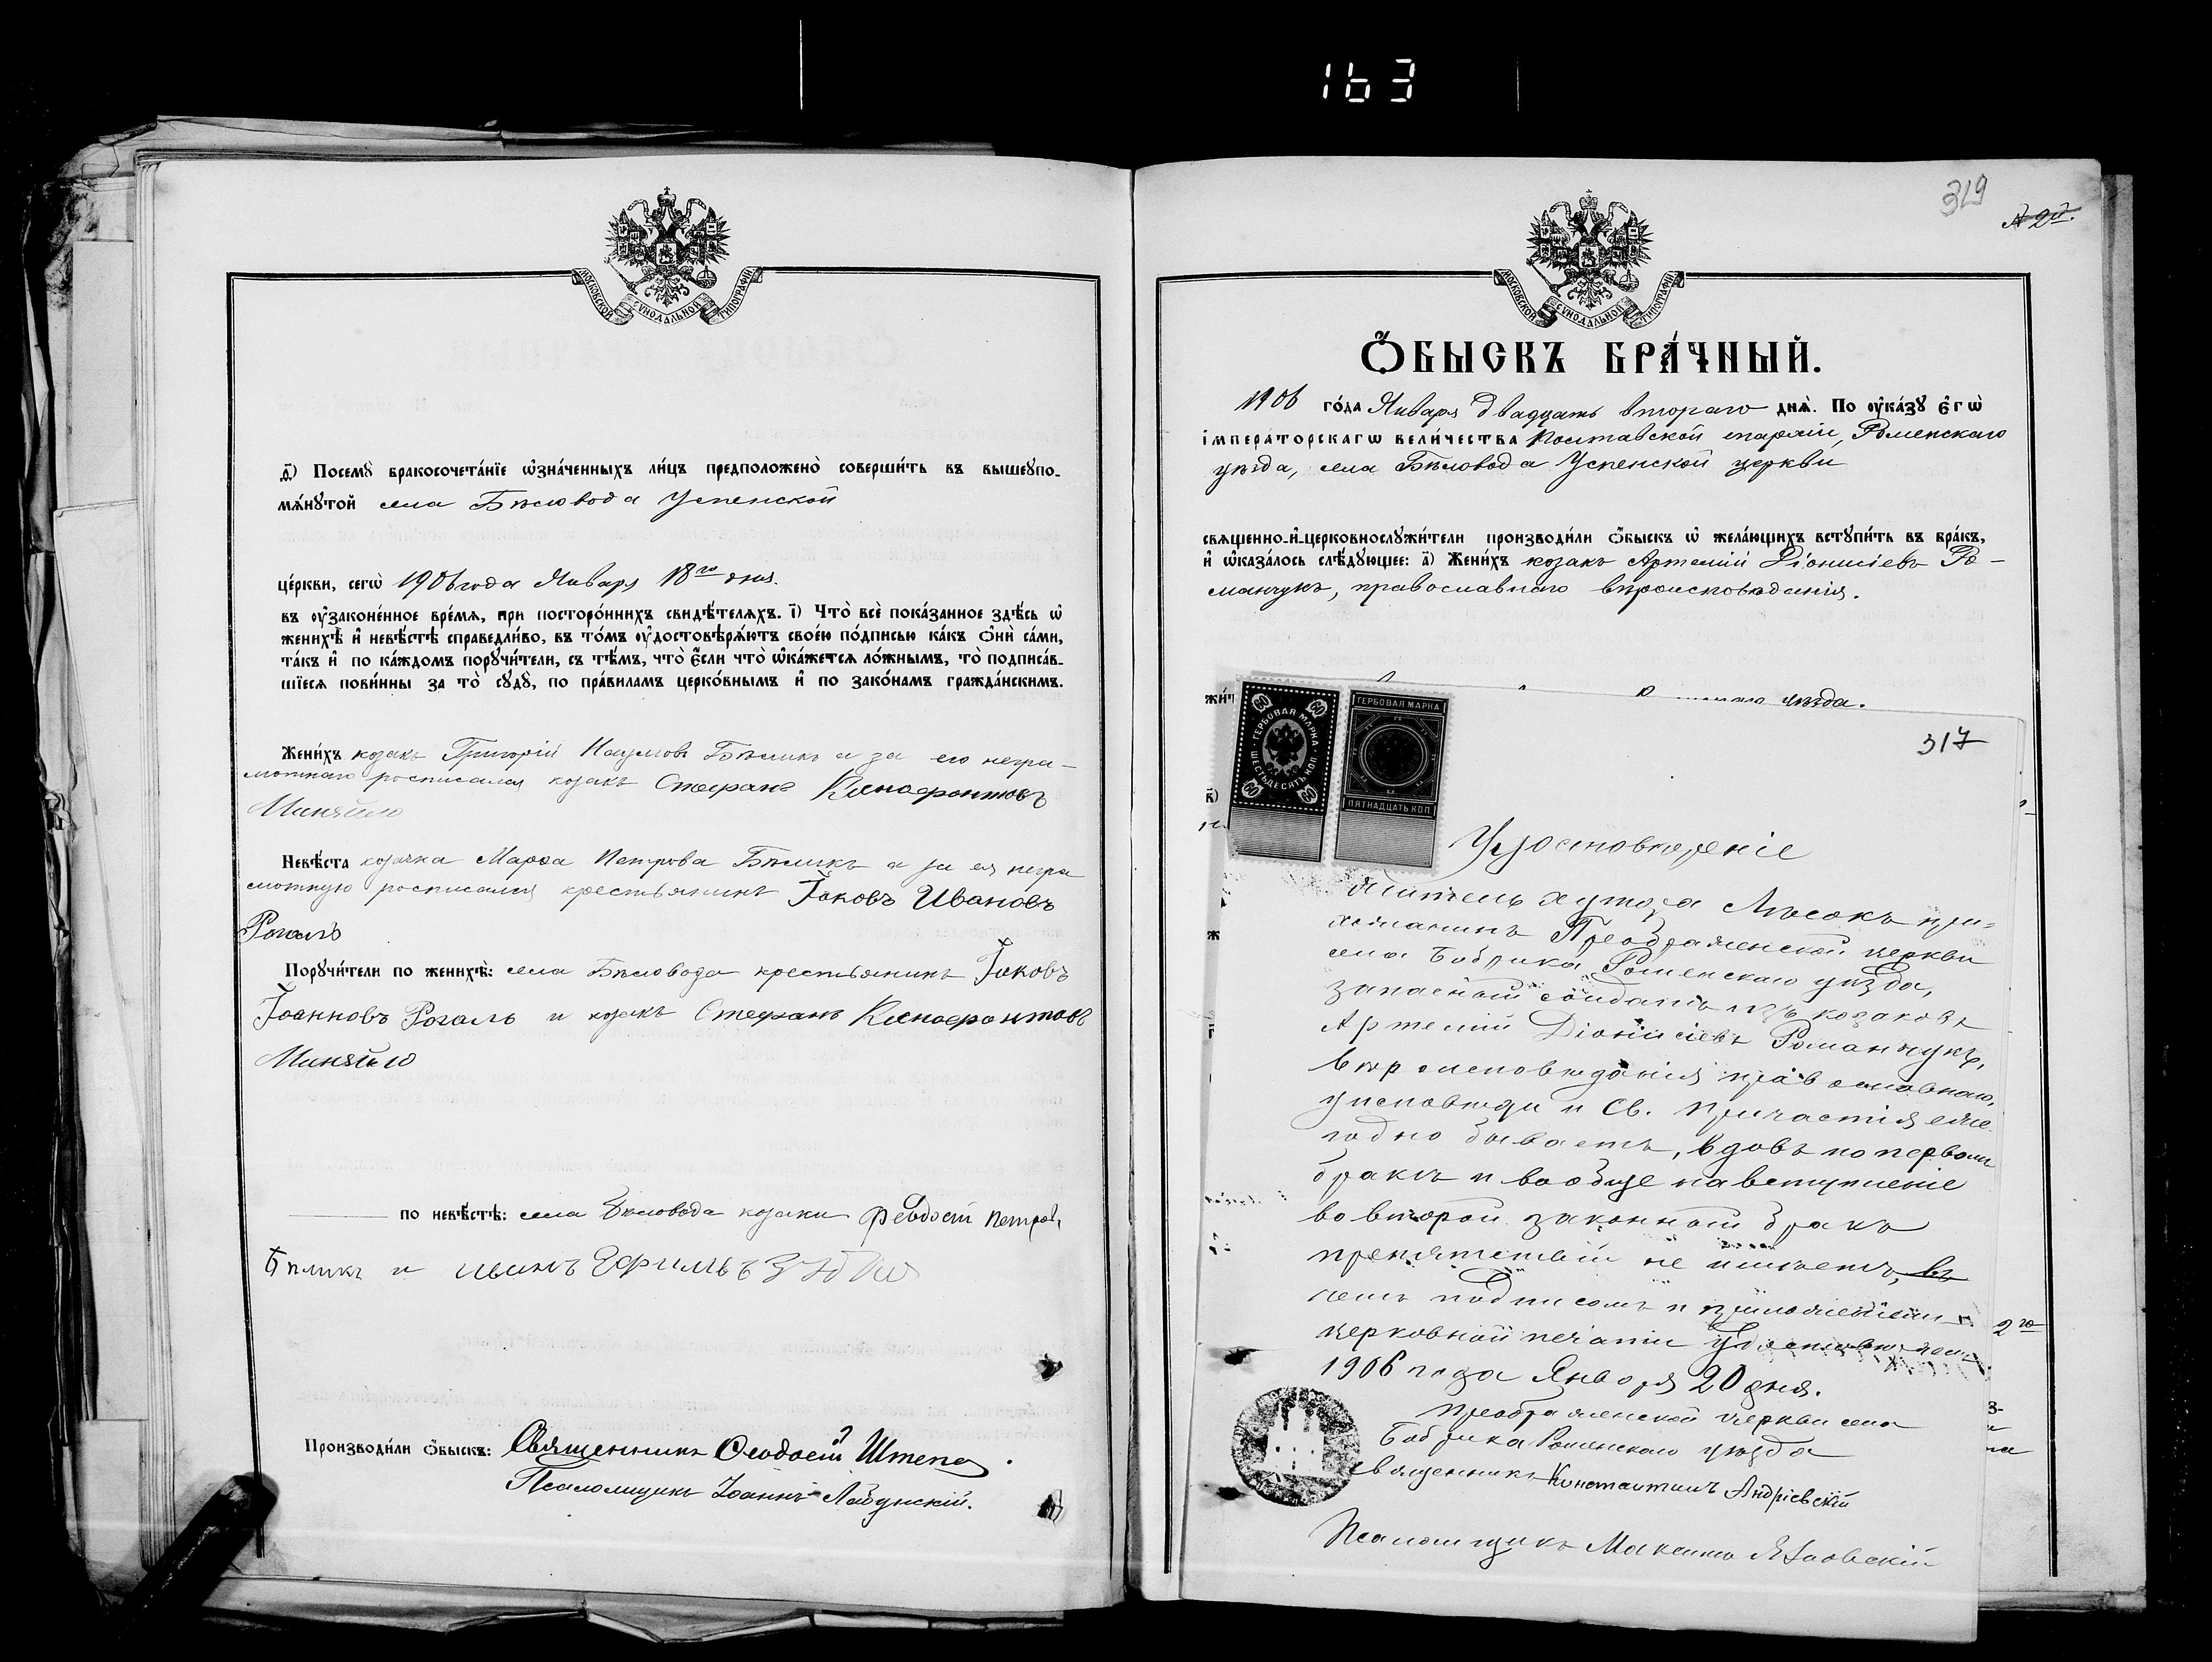 163
МОСКОВСКОЙ СѴНОДАЛЬНОЙ ТИПОГРАФІИ
ѳ҃) Посемꙋ̀ бракосочета́нїе ѡ҆зна́ченныхъ ли́цъ предположено̀ соверши́ть въ вышеꙋпо-
мѧ́нꙋтой села Бѣловода Успенской
це́ркви, сегѡ̀ 1906 года Января 18го дня.
въ ᲂу҆зако́не́нное вре́мѧ, при посторо́ннихъ свидѣ́телѧхъ. і҃) Что̀ всѐ пока́занное здѣ́сь ѡ҆
женихѣ̀ и҆ невѣ́стѣ справедли́во, въ то́мъ ᲂу҆достовѣрѧ́ютъ свое́ю по́дписью ка́къ ѻ҆нѝ са́ми,
та́къ и҆ по ка́ждомъ порꙋчи́тели, съ тѣ́мъ, что̀ є҆́сли что̀ ѡ҆ка́жетсѧ ло́жнымъ, то̀ подписа́в-
шїесѧ пови́нны за то̀ сꙋдꙋ̀, по пра́виламъ церко́внымъ и҆ по зако́намъ гражда́нскимъ.
Жени́хъ козакъ Григорій Наумовъ Бѣликъ а за его негра-
мотнаго росписался козакъ Стефанъ Ксенофонтовъ
Миняйло
Невѣ́ста козачка Марѳа Петрова Бѣликъ а за ея негра
мотную росписался крестьянинъ Іаковъ Ивановъ
Рогаль
Порꙋчи́тели по женихѣ̀: села Бѣловода крестьянинъ Іаковъ
Іоанновъ Рогаль и козакъ Стефанъ Ксенофонтовъ
Миняйло
по невѣ́стѣ: села Бѣловода козаки Феодосій Петровъ
Бѣликъ и
Производи́ли ѻ҆́быскъ: Священникъ Ѳеодосій Штепа.
Псаломщикъ Іоаннъ
319
МОСКОВСКОЙ СѴНОДАЛЬНОЙ ТИПОГРАФІИ
Ѻ҆́БЫСКЪ БРА́ЧНЫЙ.
1906 го́да Января двадцать втораго днѧ̀. По ᲂу҆ка́зꙋ є҆гѡ̀
і҆мпера́торскагѡ вели́чества Полтавской епархіи, Роменскаго
уѣзда, села Бѣловода Успенской церкви
свѧщенно-и҆-церковнослꙋжи́тели производи́ли ѻ҆́быскъ ѡ҆ жела́ющихъ встꙋпи́ть въ бра́къ,
и҆ ѡ҆каза́лось слѣ́дꙋющее: а҃) Жени́хъ козакъ Артемій Діонисіевъ Ро-
манчукъ, православнаго вѣроисповѣданія.
жи́т уѣзда.
317
ГЕРБОВАЯ МАРКА ШЕСТЬДЕСЯТЪ КОП. 60 60 60 60
ГЕРБОВАЯ МАРКА ПЯТНАДЦАТЬ КОП.
Удостовѣреніе
Житель хутора Лѣсокъ при-
хожанинъ Преображенской церкви
села Бобрика Роменскаго уѣзда,
запасный солдатъ изъ козаковъ
Артемій Діонисіевъ Романчукъ,
вѣроисповѣданія православнаго,
у исповѣди и Св. Причастія еже-
годно бываетъ, вдовъ по первомъ
бракѣ и вообще на вступленіе
во второй законный бракъ
препятствій не имѣетъ, въ
чемъ подписомъ и приложеніемъ
церковной печати удостовѣряемъ
1906 года Января 20 дня.
Преображенской церкви села
Бобрика Роменскаго уѣзда
священникъ Константинъ Андріевскій
Псаломщикъ Максимъ
2го